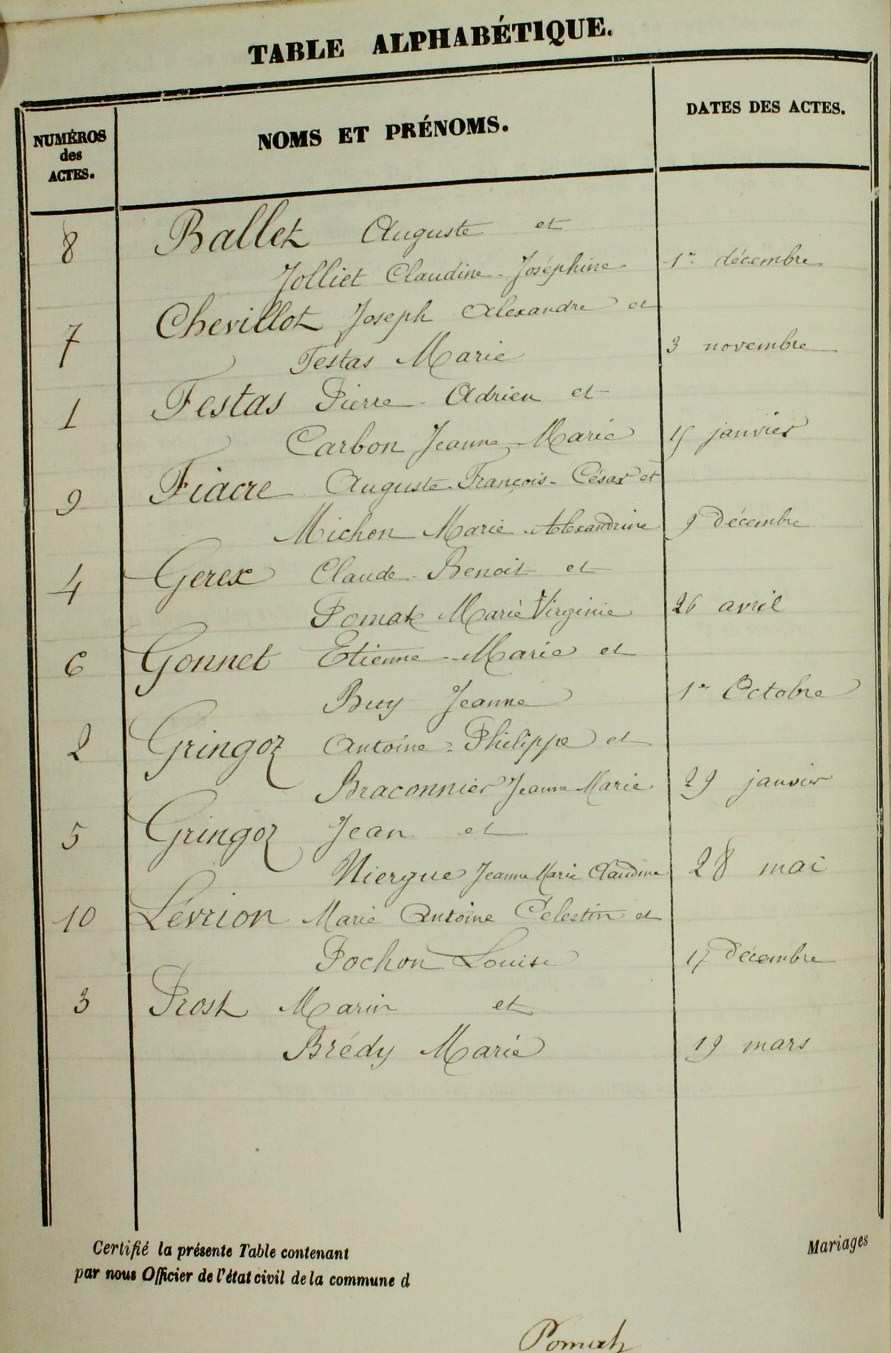 TABLE ALPHABÉTIQUE.
NUMÉROS
des
ACTES.
NOMS ET PRÉNOMS.
DATES DES ACTES.
8 Ballet Auguste et
Jolliet Claudine-Joséphine 1er décembre
7 Chevillot Joseph Alexandre et
Testas Marie 3 novembre
1 Festas Pierre-Adrien et
Carbon Jeanne-Marie 15 janvier
9 Fiacre Auguste-François-César et
Michon Marie-Alexandrine 9 Décembre
4 Gerex Claude-Benoit et
Marie Virginie 26 avril
6 Gonnet Etienne-Marie et
Buy Jeanne 1er Octobre
2 Gringoz Antoine-Philippe et
Braconnier Jeanne Marie 29 janvier
5 Gringoz Jean et
Niergue Jeanne Marie Claudine 28 mai
10 Lévrion Marie Antoine Celestin et
Pochon Louise 15 Décembre
3 Prost Marin et
Brédy Marie 19 mars
Certifié la présente Table contenant Mariages
par nous Officier de l'état civil de la commune d